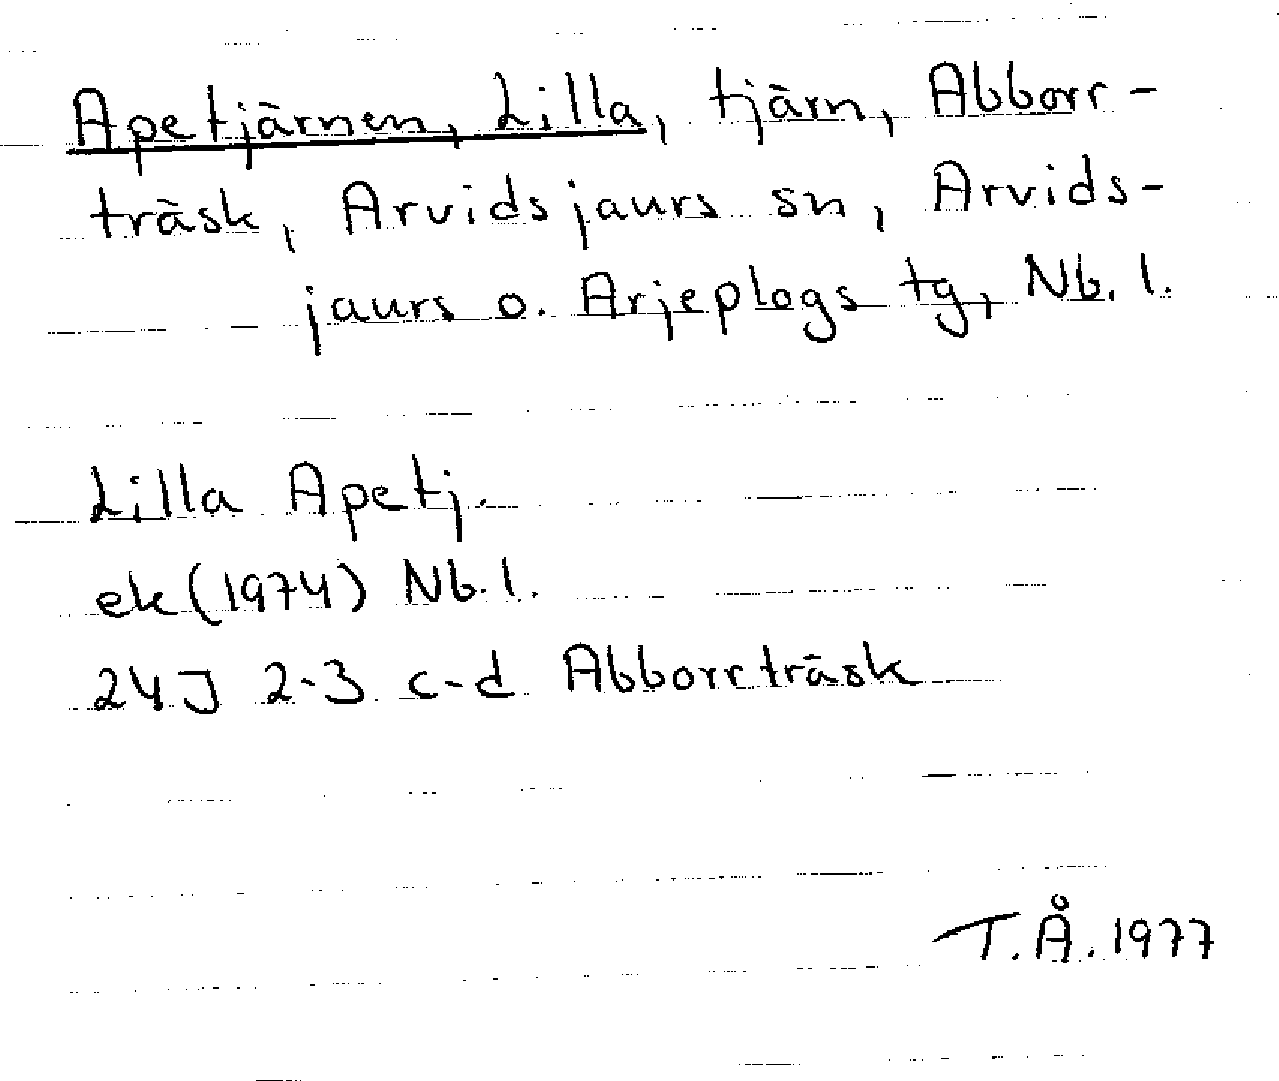 Apetjärnen, Lilla, tjärn, Abborr-
träsk, Arvidsjaurs sn, Arvids-
jaurs o. Arjeplogs tg, Nb. l.
Lilla Apetj.
ek (1974) Nb. l.
24J 2-3 c-d Abborrträsk
T. Å. 1977